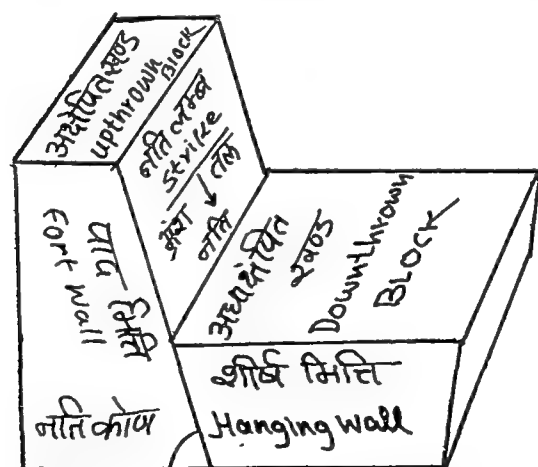 उत्क्षेपित खण्ड
upthrown BLOCK
नति लम्ब
Strike
भ्रंश तल
नति
पाद भित्ति
Fort wall
अधःक्षेपित
खण्ड
Downthrown
BLOCK
शीर्ष भित्ति
Hanging wall
नति कोण